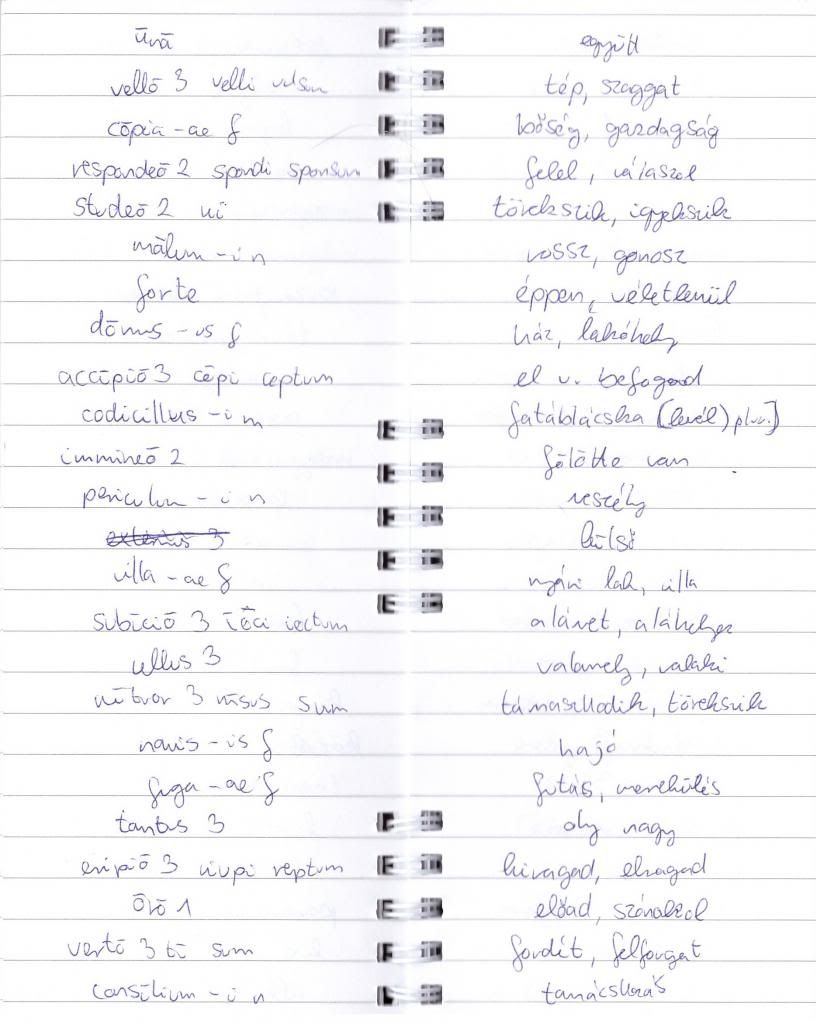 ūnā együtt
vellō 3 velli vulsum tép, szaggat
cōpia -ae f bőség, gazdagság
respondeō 2 spondi sponsum felel, válaszol
studeō 2 ui törekszik, igyekszik
mālum -i n rossz, gonosz
forte éppen, véletlenül
dōmus -us f ház, lakóhely
accipiō 3 cēpi ceptum el v. befogad
codicillus -i m fatáblácska (levél) plur.]
immineō 2 fölötte van
periculum -i n veszély
exterius 3 külső
villa -ae f nyári lak, villa
subiciō 3 iēci iectum alávet, aláhelyez
ullus 3 valamely, valaki
nītor 3 nisus sum támaszkodik, törekszik
navis -is f hajó
fuga -ae f futás, menekülés
tantus 3 oly nagy
eripiō 3 ripui reptum kiragad, elragad
ōrō 1 előad, szónokol
vertō 3 ti sum fordít, felforgat
consilium -i n tanácskozás